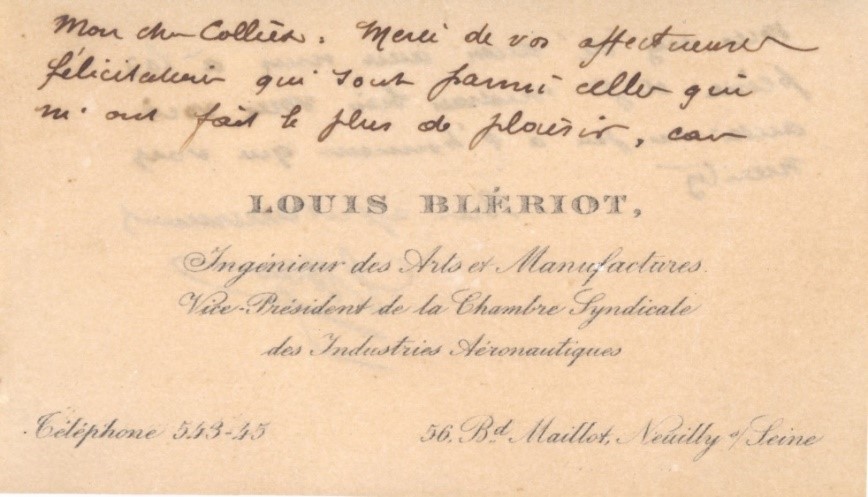 Mon cher Collièr. Merci de vos affectueuses
félicitations qui sont parmi celles qui
m'ont fait le plus de plaisir, car
LOUIS BLÉRIOT,
Ingénieur des Arts et Manufactures.
Vice-Président de la Chambre Syndicale
des Industries Aéronautiques
Téléphone 543-45
56, Bd Maillot, Neuilly s/Seine